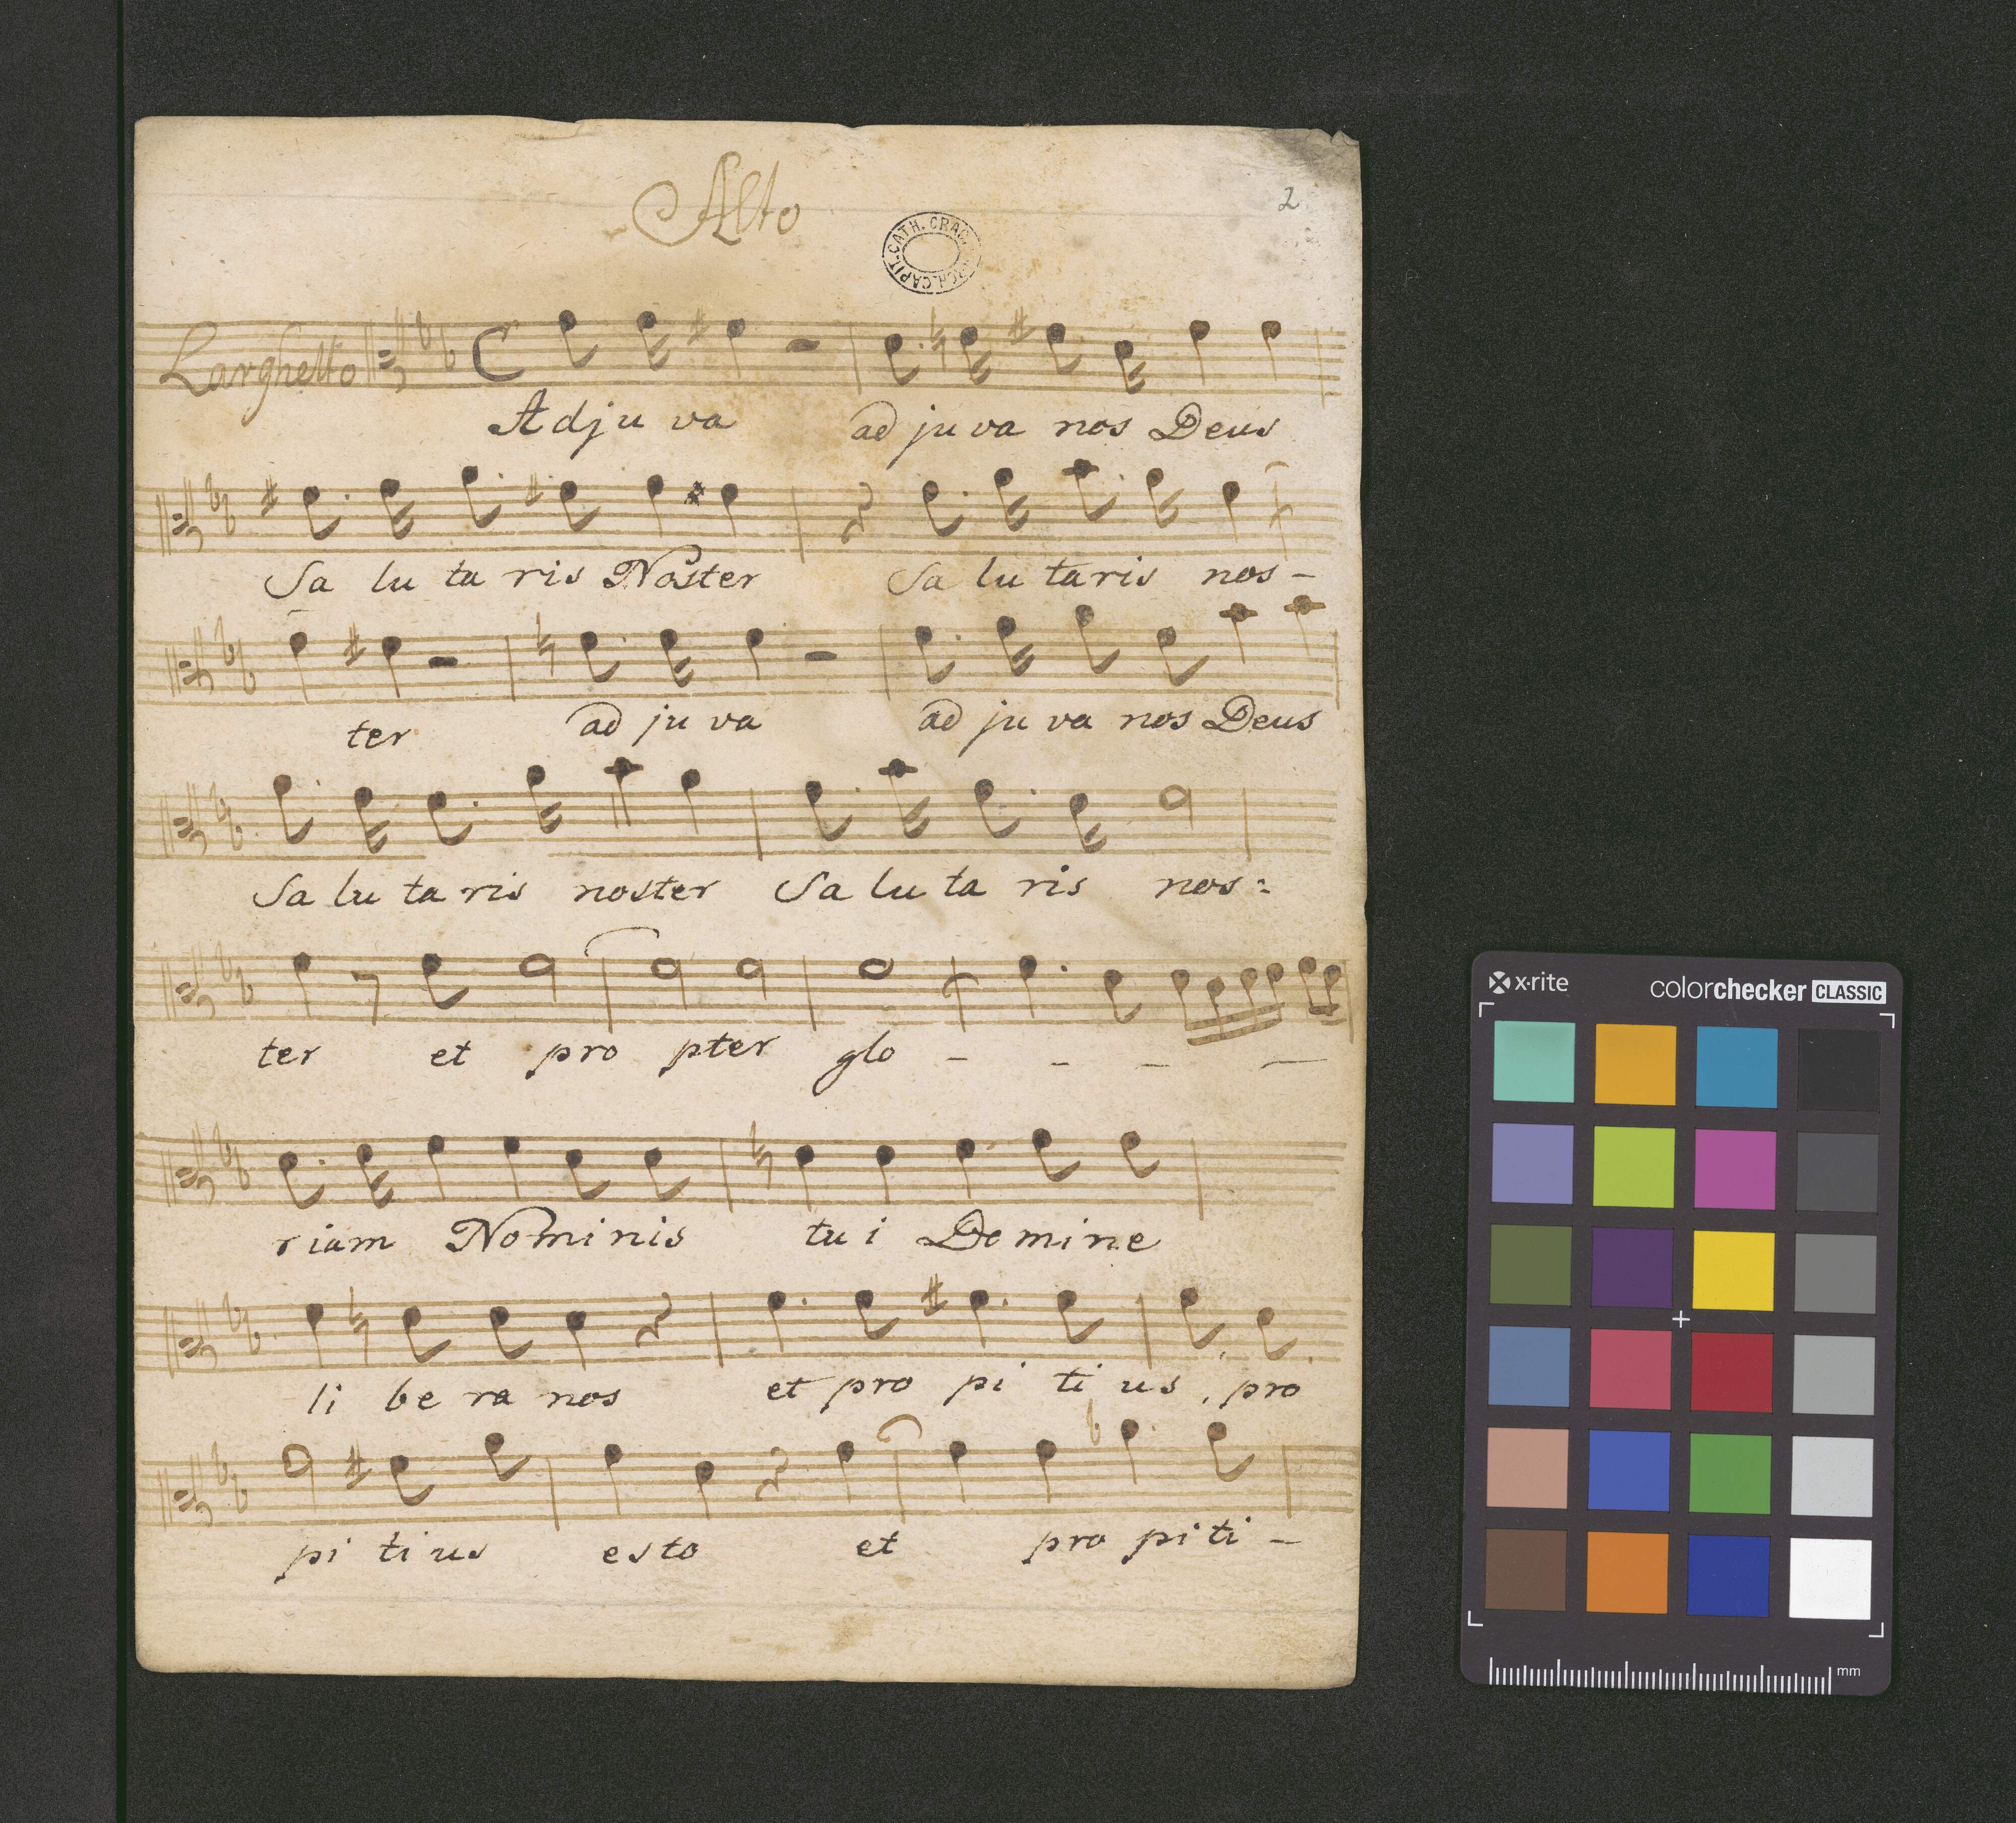 Alto
2
CAPIT. CATH. CRAC.
Larghetto
Adju va ad ju va nos Deus
Sa lu ta ris Noster Sa lu taris nos-
ter ad ju va ad ju va nos Deus
Sa lu ta ris noster Sa lu ta ris nos:
ter et pro pter glo - - - -
riam Nominis tu i Do mi ne
li be ra nos et pro pi ti us, pro
pi ti us esto et pro pi ti -
x·rite colorchecker CLASSIC
mm